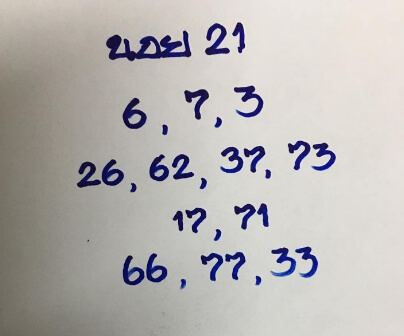 นอย 21
6, 7, 3
26, 62, 37, 73
17, 71
66, 77, 33